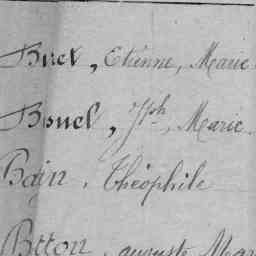 Buet, Etienne, Marie
Bonel, Jph, Marie
Bain, Théophile
Breton, auguste Mar